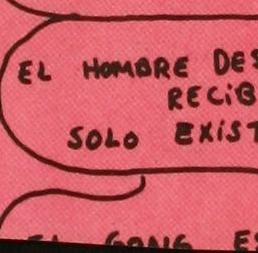 EL HOMBRE DES
RECIB
SOLO EXIST
EL GONG ES